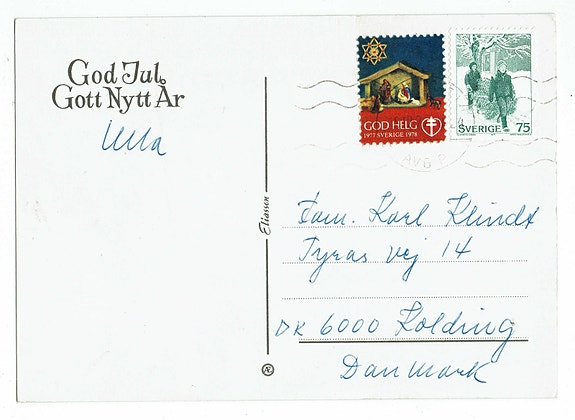 God Jul
Gott Nytt År
Ulla
GOD HELG
1977 SVERIGE 1978
SVERIGE 75
AVG P
Eliasson
Fam. Karl Klindt
Tyras Vej 14
DK 6000 Kolding
Danmark
Æ